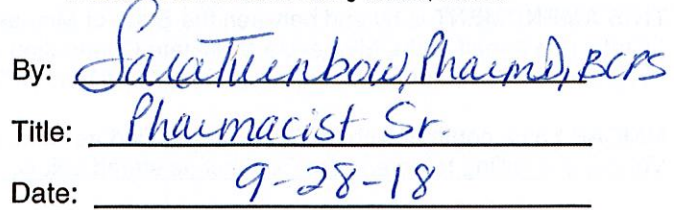 By: Sara Turnbow, PharmD, BCPS
Title: Pharmacist Sr.
Date: 9-28-18